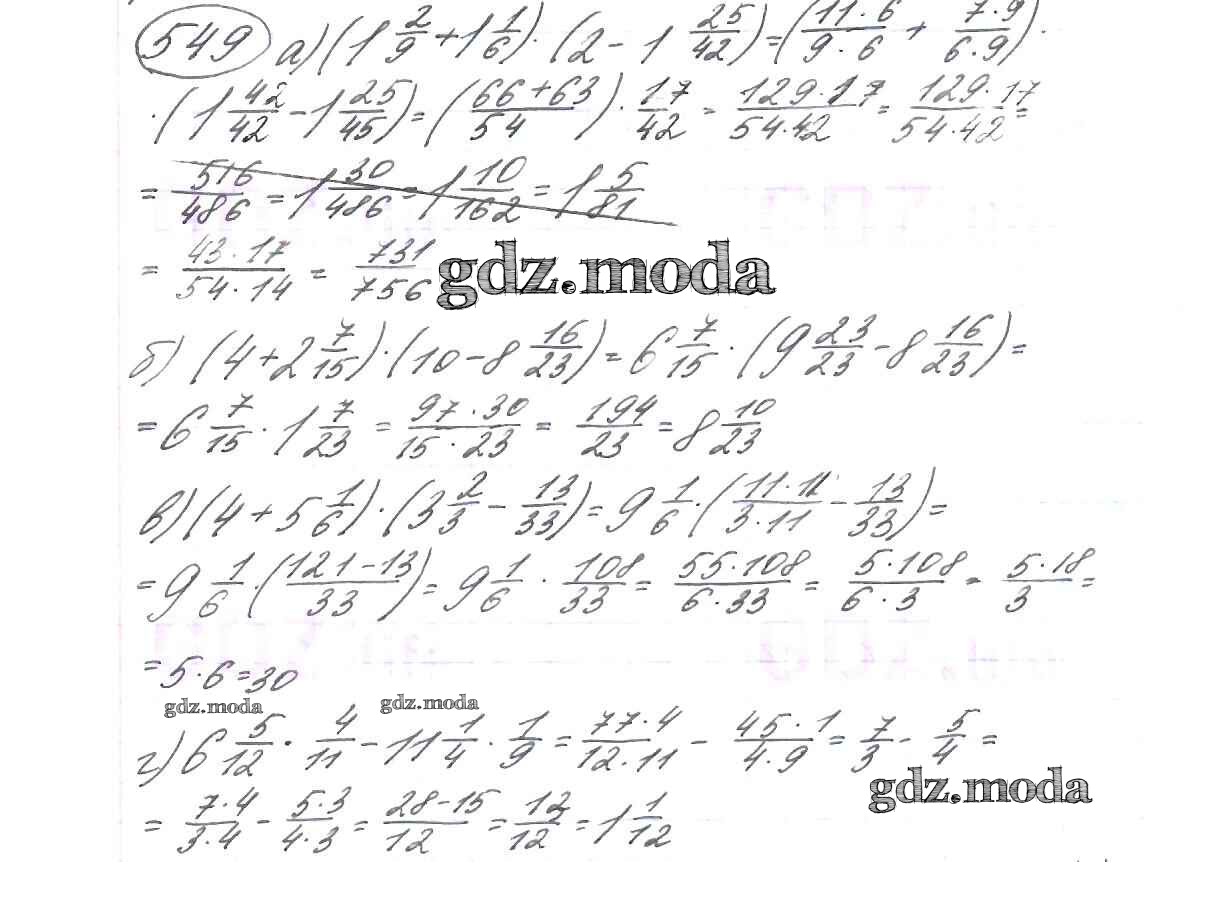 549 а) (1 2/9 + 1 1/6) · (2 - 1 25/42) = (11·6/9·6 + 7·9/6·9) ·
· (1 42/42 - 1 25/45) = (66+63/54) · 17/42 = 129·17/54·42 = 129·17/54·42 =
= 516/486 = 1 30/486 = 1 10/162 = 1 5/81
= 43·17/54·14 = 731/756 gdz.moda
б) (4 + 2 7/15) · (10 - 8 16/23) = 6 7/15 · (9 23/23 - 8 16/23) =
= 6 7/15 · 1 7/23 = 97·30/15·23 = 194/23 = 8 10/23
в) (4 + 5 1/6) · (3 2/3 - 13/33) = 9 1/6 · (11·11/3·11 - 13/33) =
= 9 1/6 · (121-13/33) = 9 1/6 · 108/33 = 55·108/6·33 = 5·108/6·3 = 5·18/3 =
= 5·6 = 30
gdz.moda gdz.moda
г) 6 5/12 · 4/11 - 11 1/4 · 1/9 = 77·4/12·11 - 45·1/4·9 = 7/3 - 5/4 =
gdz.moda
= 7·4/3·4 - 5·3/4·3 = 28-15/12 = 13/12 = 1 1/12